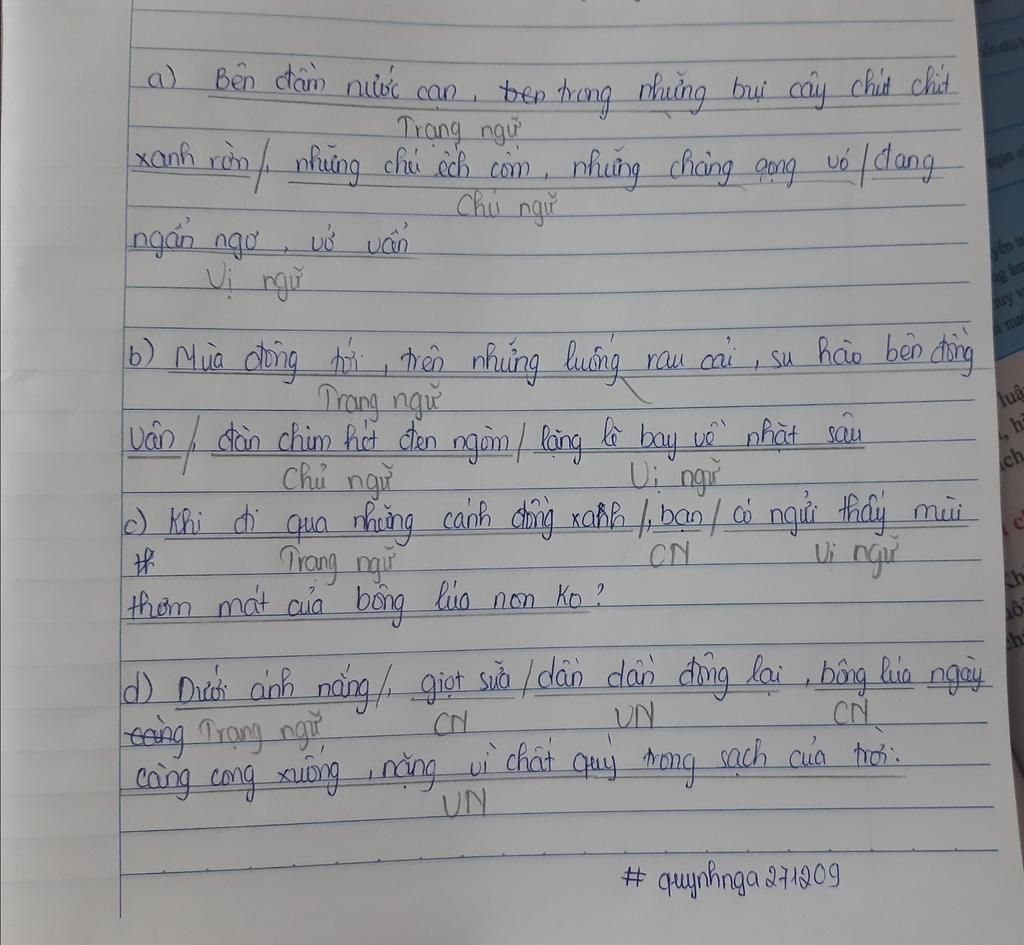 a) Bên đầm nước cạn, ben trong những bụi cây chút chít
Trạng ngữ
xanh rờn /, những chú ếch cốm, những chàng gọng vó / đang
Chủ ngữ
ngẩn ngơ, vớ vẩn
Vị ngữ
b) Mùa đông tới, trên những luống rau cải, su hào bên đồng
Trạng ngữ
vân /, đàn chim hét đen ngòm / lặng lẽ bay về nhặt sâu
Chủ ngữ Vị ngữ
c) Khi đi qua những cánh đồng xanh /, bạn / có ngửi thấy mùi
th Trạng ngữ CN Vị ngữ
thơm mát của bông lúa non ko?
d) Dưới ánh nắng /, giọt sữa / dần dần đông lại, bông lúa ngày
càng Trạng ngữ CN VN CN
càng cong xuống, nặng vì chất quý trong sạch của trời.
VN
# quynhnga271209